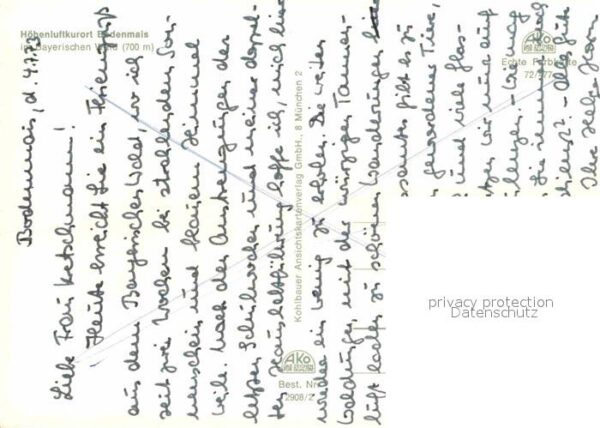 Höhenluftkurort Bodenmais
im Bayerischen Wald (700 m)
Echte Farbkarte
72/577
Kohlbauer Ansichtskartenverlag GmbH., 8 München 2
AKo
Best. Nr.
2908/2
privacy protection
Datenschutz
Bodenmais, d. 4.7.73
Liebe Frau Ketschmann!
Heute erreicht Sie ein Feriengruß
aus dem Bayerischen Wald, wo ich
seit zwei Wochen bei strahlendem Son-
nenschein und blauem Himmel
weile. Nach den Anstrengungen der
letzten Schulwochen und meiner doppel-
ten Haushaltsführung hoffe ich, mich hier
wieder ein wenig zu erholen. Die weiten
Waldungen mit der würzigen Tannen-
luft laden zu schönen Wanderungen ein.
gibt es zu
Tiere,
und viele
wir nun auf
Sie
- Alles Gute
Ihre